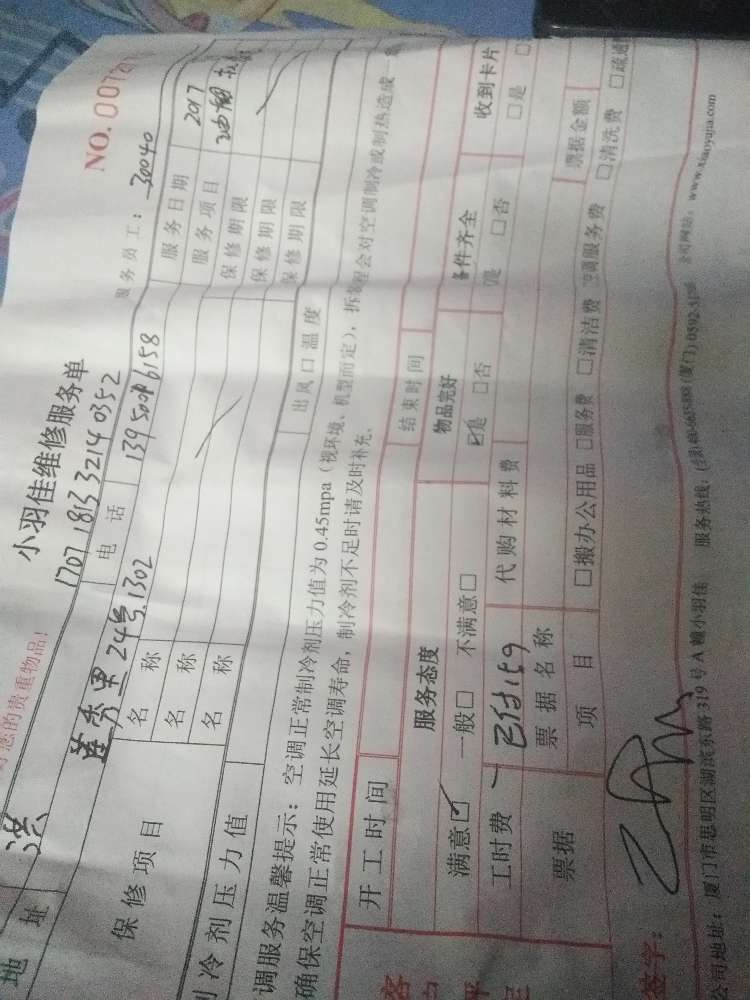 小羽佳维修服务单
NO.
您的贵重物品!
1707 1813 3214 0352
服务员工: 30040
地址
洪
莲秀里24号.1302
电话
139 5001 6158
服务日期
2017
保修项目
名称
服务项目
油烟
名称
保修期限
名称
保修期限
保修期限
制冷剂压力值
出风口温度
调服务温馨提示: 空调正常制冷剂压力值为0.45mpa (视环境、机型而定), 拆装程会对空调制冷或制热造成一
确保空调正常使用延长空调寿命, 制冷剂不足时请及时补充。
开工时间
结束时间
服务态度
物品完好
备件齐全
收到卡片
满意☑ 一般□ 不满意□
☑是 □否
是 □否
□是
工时费
已付159
代购材料费
票据
票据名称
票据金额
项目
□搬办公用品 □服务费 □清洁费 空调服务费 □清洗费 □疏通
签字:
公司地址: 厦门市思明区湖滨东路319号A幢小羽佳
服务热线:
公司网站: www.xiaoyujia.com